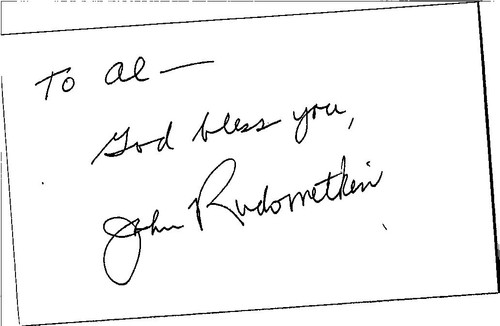 To Al —
God bless you,
John Rudometkin